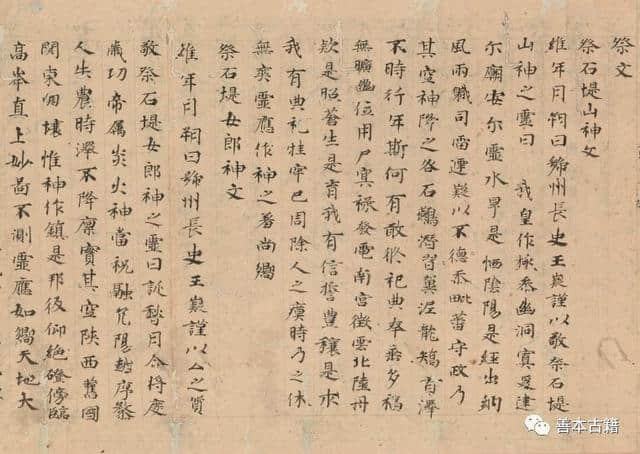 祭文
祭石堤山神文
維年月朔日虢州長史王嶷謹以敬祭石堤
山神之靈曰 我皇作極幽洞冥爰建
尔廟安尔靈水旱是恓陰陽是經出納
風雨職司雷運嶷以不德忝毗蕃守政乃
其空神降之各石鷰潛涅能矯育澤
不時行年斯何有敢從祀典奉多稿
無曠幽位用尸寞祿發電南宮徵雲北陸丹
欵是照蒼生是育我有信誓豊穰是求
我有典礼牲牢已周除人之瘼時乃之休
無爽靈應作神之著尚饗
祭石堤女郎神文
維年月朔日虢州長史王嶷謹以人之質
敬祭石堤女郎神之靈曰月令將慶
咸功帝属炎火神當祝融亢陽愆序
人失農時澤不降廩實其空陝西舊國
関東壤惟神作鎮是仰絶磴傍臨
高峯直上妙啚不測靈應如嚮天地大
善本古籍